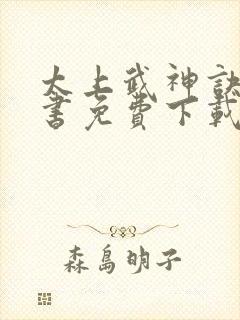 太上武神訣
書免費下載
森島明子